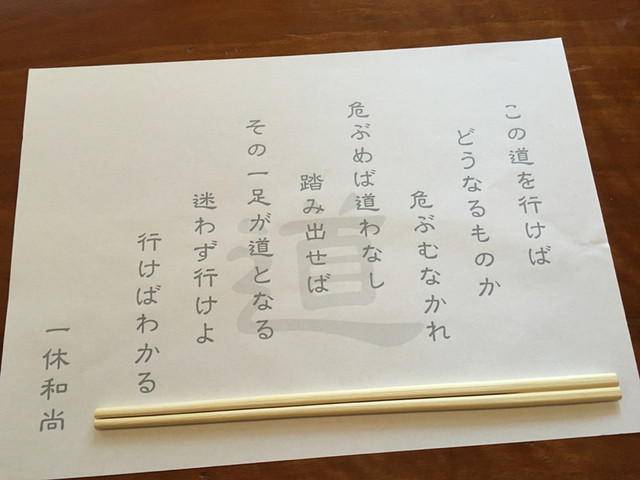 この道を行けば
どうなるものか
危ぶむなかれ
危ぶめば道わなし
踏み出せば
その一足が道となる
迷わず行けよ
行けばわかる
一休和尚
道